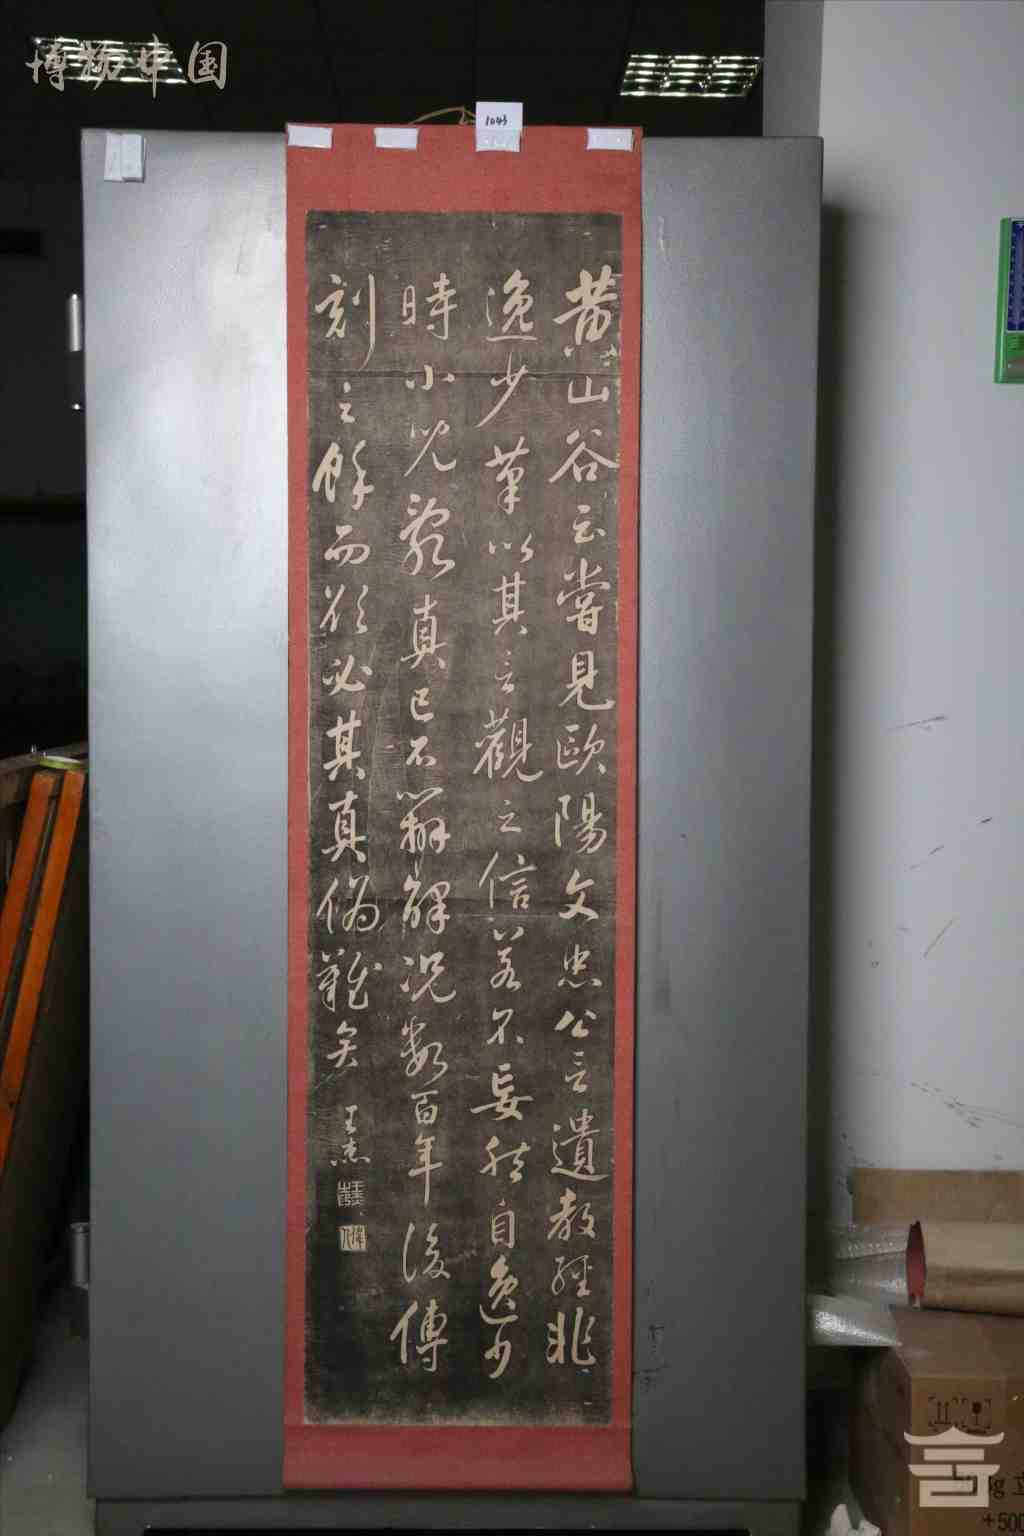 博物中国
1043
黄山谷云嘗見歐陽文忠公言遺教經非
逸少筆以其言觀之信若不妄然自逸少
時小兒亂真已不辨解況數百年後傳
刻之餘而欲必其真偽難矣
王杰
+500